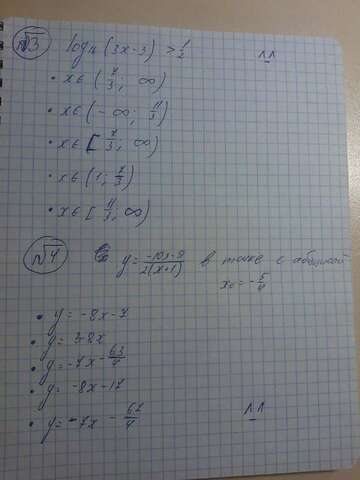 №3 log₄(3x-3) > 1/2
• x∈ (7/3; ∞)
• x∈ (-∞; 11/3)
• x∈ [7/3; ∞)
• x∈ (1; 7/3)
• x∈ [11/3; ∞)
№4 y = -10x-9 / 2(x+1) в точке с абсциссой
x₀ = -5/4
• y = -8x-7
• y = 3-8x
• y = -7x - 63/4
• y = -8x-17
• y = -7x - 67/4